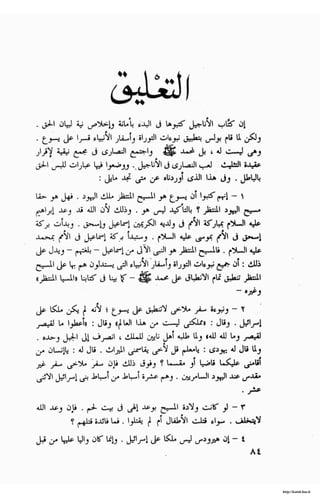 التعليق
إن كتّاب الأناجيل كتبوها فى البدء بأمانة وإخلاص نية لبيان الحق .
ولكن لما قام بولس بتطبيق نبوءات التوراة وأسفار الأنبياء قسرا على يسوع .
وهى ليست له ، بل لمحمد ﷺ واجتمع النصارى فى مجمع نيقية لإقرار
عقيدة التثليث لعب النصارى فى الأناجيل . ووضعوا فيها عبارات للبس الحق
بالباطل . وفى هذا الذى أوردناه عن متى تجد مايلى :
١ – إنهم كتبوا أن يسوع هو المسيح المنتظر ملك اليهود . فهل هو حقا
مسيح اليهود المنتظر ؟ بالتأكيد ليس هو . وذلك لأن الله قد وعد إبراهيم
عليه السلام بمباركة الأمم فى ولديه الكريمين إسماعيل وإسحق . وبدأت بركة
إسحق فى الأمم بموسى عليه السلام . وستبدأ بركة إسماعيل فى الأمم بمحمد
عليه السلام . فالمسيح المنتظر هو النبى الآتى من إسماعيل – بلغتهم – ويدل على
ذلك : أن جميع نبوءات التوراة وأسفار الأنبياء التى يستدلون هم بها على المسيح
المنتظر تنطبق تمام الانطباق على محمد ﷺ – كما بينا فى كتابنا «المسيا المنتظر»
وغيره –
٢ – ونبوءة سفر ملاخى لاتنطبق على يسوع ؛ لأنه لم يكن ملكا على
إسرائيل . وقال : «مملكتى ليست من هذا العالم» وقال : «أعطوا ما لقيصر
لقيصر وما لله لله» ولما طلبه أهل نايين للملك ، انصرف إلى الجبل وحده .
ولما قال له يهودى : يامعلم قل لأخى يقاسمنى الميراث . قال له : ياإنسان من
أقامنى عليكما قاضيا أو مقسما ؟ وفوق ذلك فإن سفر ملاخى سفر غير
مقدس عند اليهود السامريين . وهم عشرة أسباط من أسباط بنى إسرائيل الاثنى
عشر .
٣ – لو كانت ولادة المسيح بوعد إلهى فى بيت لحم . فإن وعد الله
لايتخلف . سواء قتلت الأطفال أم لم يقتلوا . فما فائدة قتلهم ؟
٤ – إن هيرودس ليس ملكا على إسرائيل . وإنما كان واليا عليها من قبل
٨٤